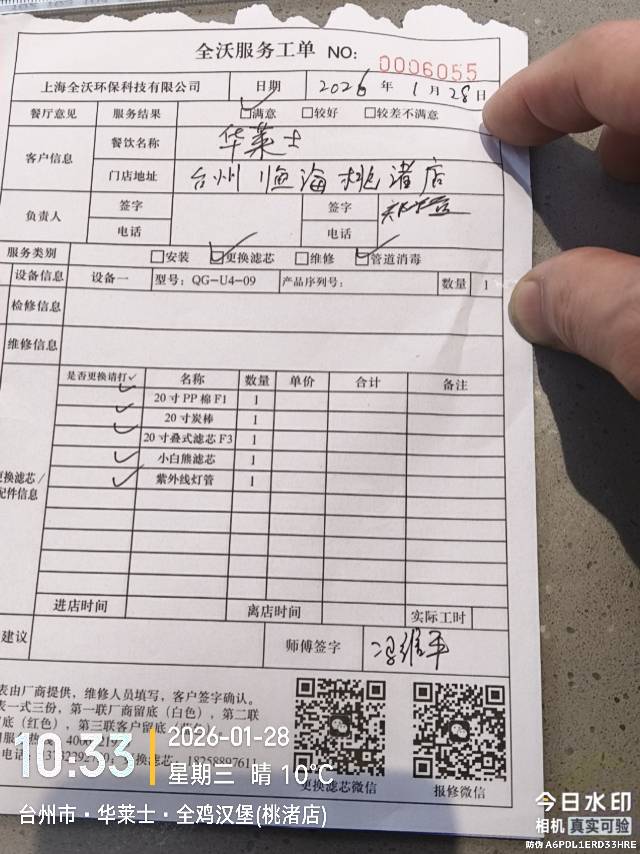 全沃服务工单 NO: 0006055
上海全沃环保科技有限公司 日期 2026 年 1 月 28 日
餐厅意见 服务结果 ☑满意 □较好 □较差不满意
客户信息 餐饮名称 华莱士
门店地址 台州临海桃渚店
负责人 签字 签字
电话 电话
服务类别 □安装 ☑更换滤芯 □维修 ☑管道消毒
设备信息 设备一 型号：QG-U4-09 产品序列号： 数量 1
检修信息
维修信息
是否更换请打✓ 名称 数量 单价 合计 备注
✓ 20寸PP棉F1 1
✓ 20寸炭棒 1
✓ 20寸叠式滤芯F3 1
✓ 小白熊滤芯 1
✓ 紫外线灯管 1
更换滤芯/
配件信息
进店时间 离店时间 实际工时
建议 师傅签字 冯维平
表由厂商提供，维修人员填写，客户签字确认。
表一式三份，第一联厂商留底（白色），第二联
底（红色），第三联客户留底
更换滤芯微信 报修微信
10:33 2026-01-28
星期三 晴 10℃
台州市·华莱士·全鸡汉堡(桃渚店)
今日水印
相机 真实可验
防伪 A6PDL1ERD33HRE